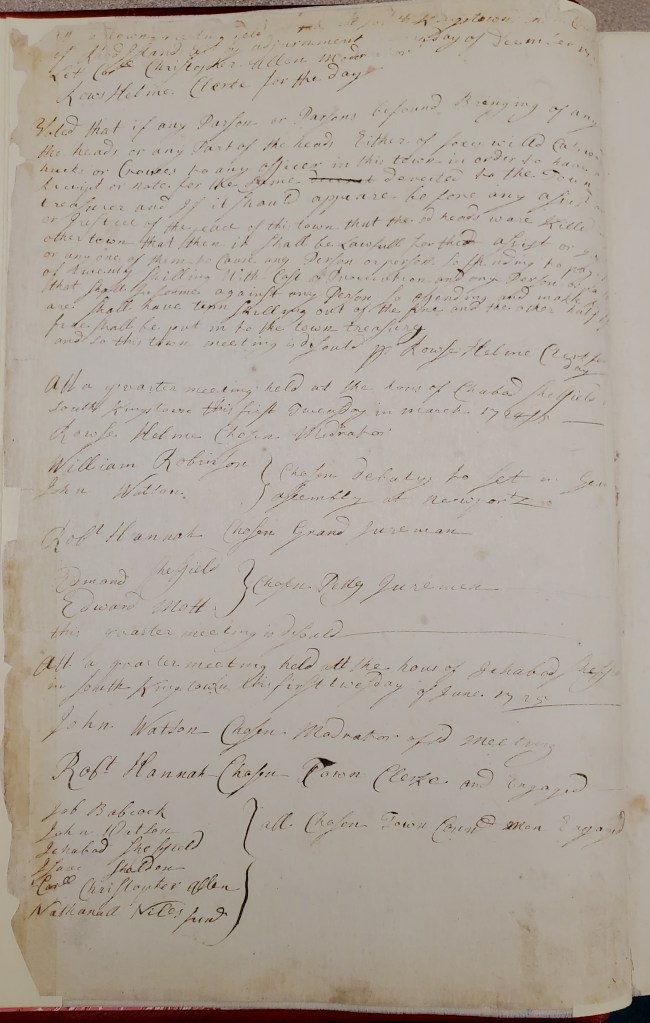 in a towne meeting held Kingstown in
of adjournment day of December
Let Capt Christopher Allen Moder
Rows Helme Clerke for the day
Voted that if any Parson or Parsons be found Bringing of any
the heads or any Part of the heads Either of foxes willd Cats
or Crowes to any officer in this town in order to have
Receipt or note for the same deverted to the Town
treasurer and If it should appeare before any asist
or Justice of the peace of this town that the sd heads ware Killd
other town that then it shall be Lawfull for the asist or
or any one of them to Cause any Person or persons so ofending to pay
of twenty shilling With Cost of and any Person
that shall Informe against any Person so ofending and make
are shall have tenn shilling out of the fine and the other half
fine shall be put in to the town treasury
and so this town meeting is desould pr Rowse Helme Clerk for
day
Att a quarter meeting held at the hous of Sheffield
South Kingstown this first Tuesday in march 1724/5
Rowse Helme Chosen Modrator
William Robinson
John Watson
Chosen Debatys to set in Gen
assembly at newport
Robt Hannah Chosen Grand Jureman
Edmand Sheffield
Edward Mott
Chosen Petty Juremen
this quarter meeting is desould
Att a quarter meeting held att the hous of Jehabod Sheff
in South Kingstown this first tuesday of June 1725
John Watson Chosen Modrator of sd meeting
Robt Hannah Chosen Town Clerke and Engaged
Job Babcock
John Watson
Jehabod Sheffield
Isaac Sheldon
Capt Christopher Allen
Nathanall Niles
all Chosen Town Counc men Engagd